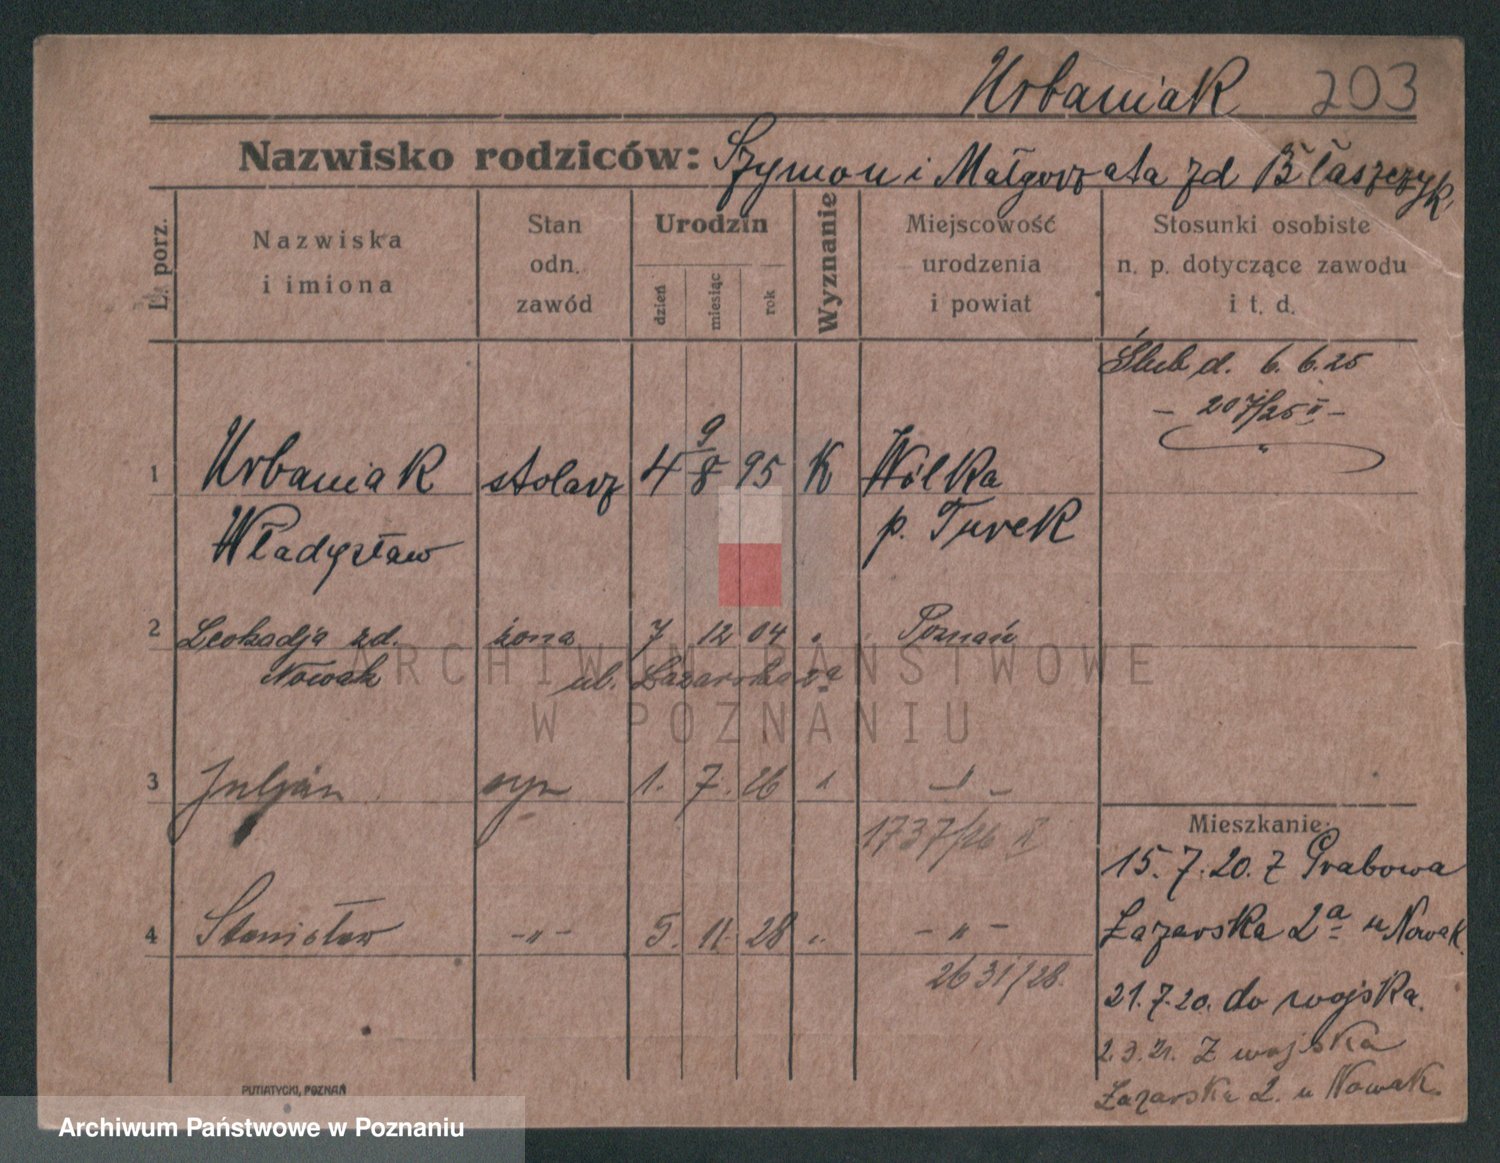 Urbaniak 203
Nazwisko rodziców: Szymon i Małgorzata zd Błaszczyk
L. porz.
Nazwiska
i imiona
Stan
odn.
zawód
Urodzin
dzień
miesiąc
rok
Wyznanie
Miejscowość
urodzenia
i powiat
Stosunki osobiste
n. p. dotyczące zawodu
i t. d.
Ślub d. 6. 6. 25
- 207/25 II -
9
1 Urbaniak stolarz 4 8 95 K Wólka
Władysław p. Turek
2 Leokadja zd. żona 7 12 04 Poznań
Nowak ul. Łazarska 2a
ARCHIWUM PAŃSTWOWE
W POZNANIU
3 Juljan syn 1. 7. 26
1737/26 II
4 Stanisław -„- 5. 11. 28 -„-
2631/28.
Mieszkanie:
15. 7. 20. z Grabowa
Łazarska 2a u Nowak.
21. 7. 20. do wojska.
2.3.21. Z wojska
Łazarska 2. u Nowak.
PUTIATYCKI, POZNAŃ
Archiwum Państwowe w Poznaniu